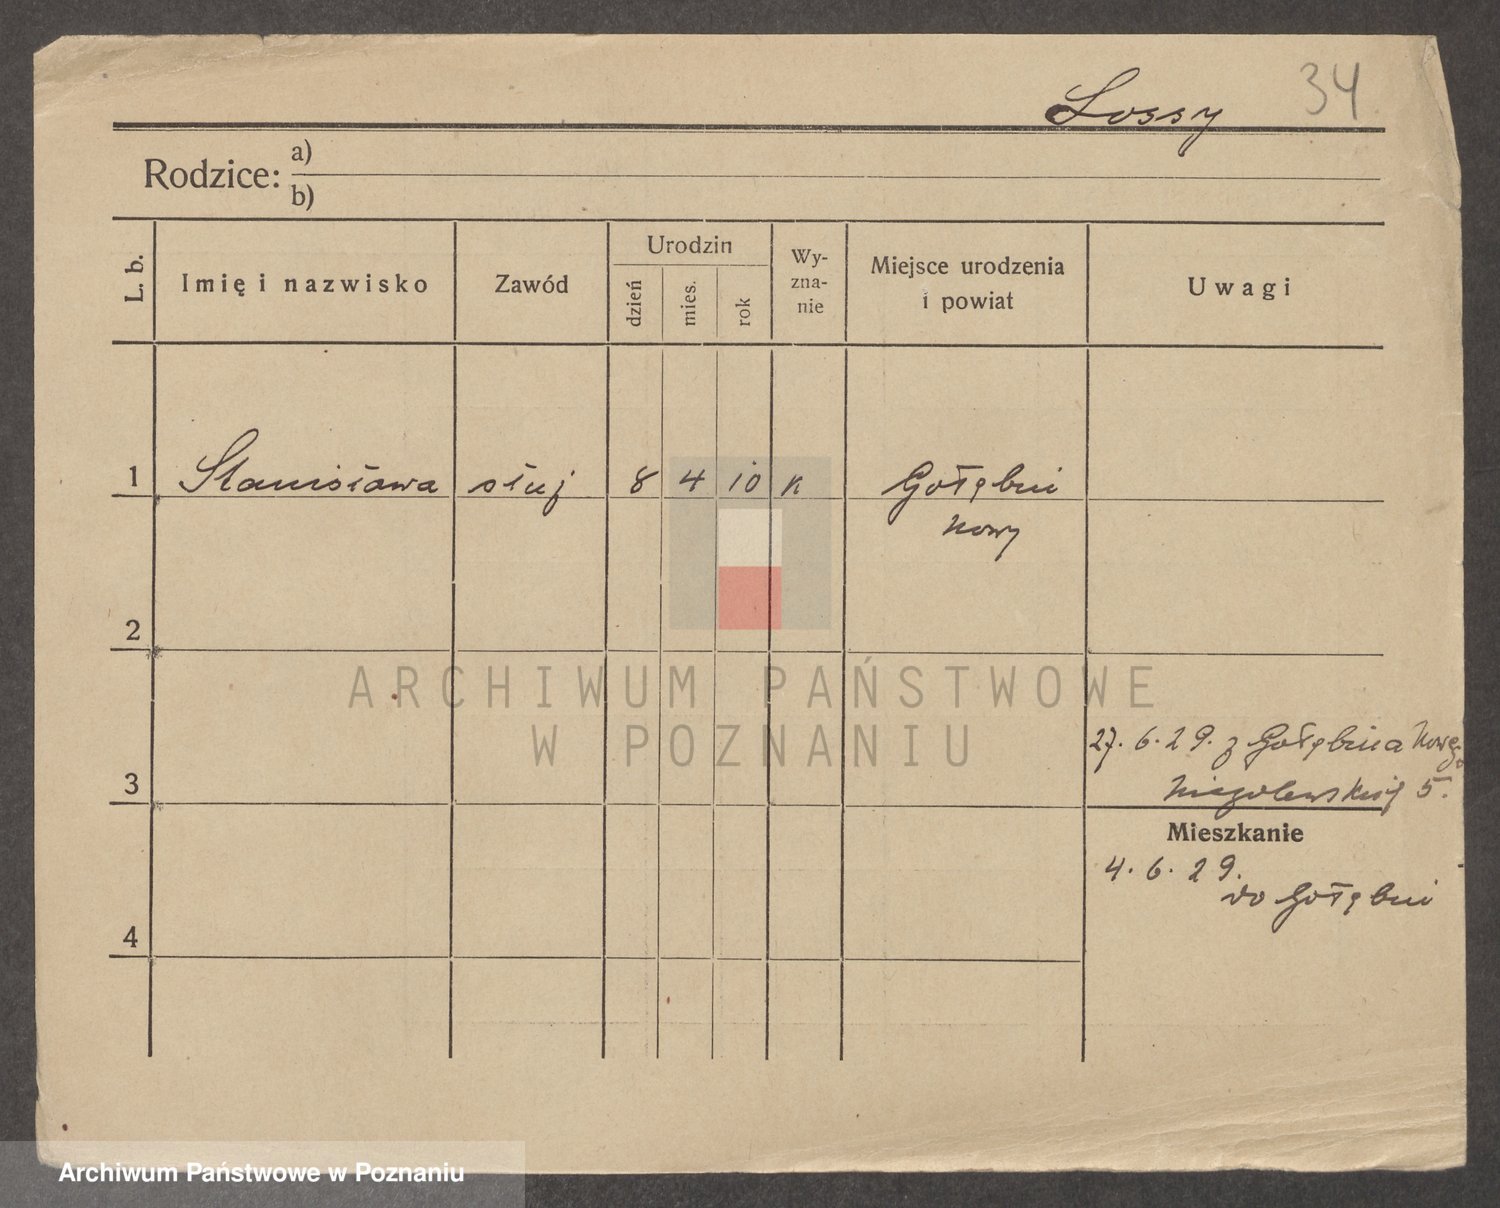 Lossy 34
Rodzice: a)
b)
L. b.
Imię i nazwisko
Zawód
Urodzin
dzień
mies.
rok
Wy-
zna-
nie
Miejsce urodzenia
i powiat
Uwagi
1 Stanisława służ 8 4 10 k Gołębin
Nowy
2
ARCHIWUM PAŃSTWOWE
W POZNANIU
27. 6. 29. z Gołębina Nowego
3
Niegolewskiej 5.
Mieszkanie
4. 6. 29.
do Gołębin
4
Archiwum Państwowe w Poznaniu